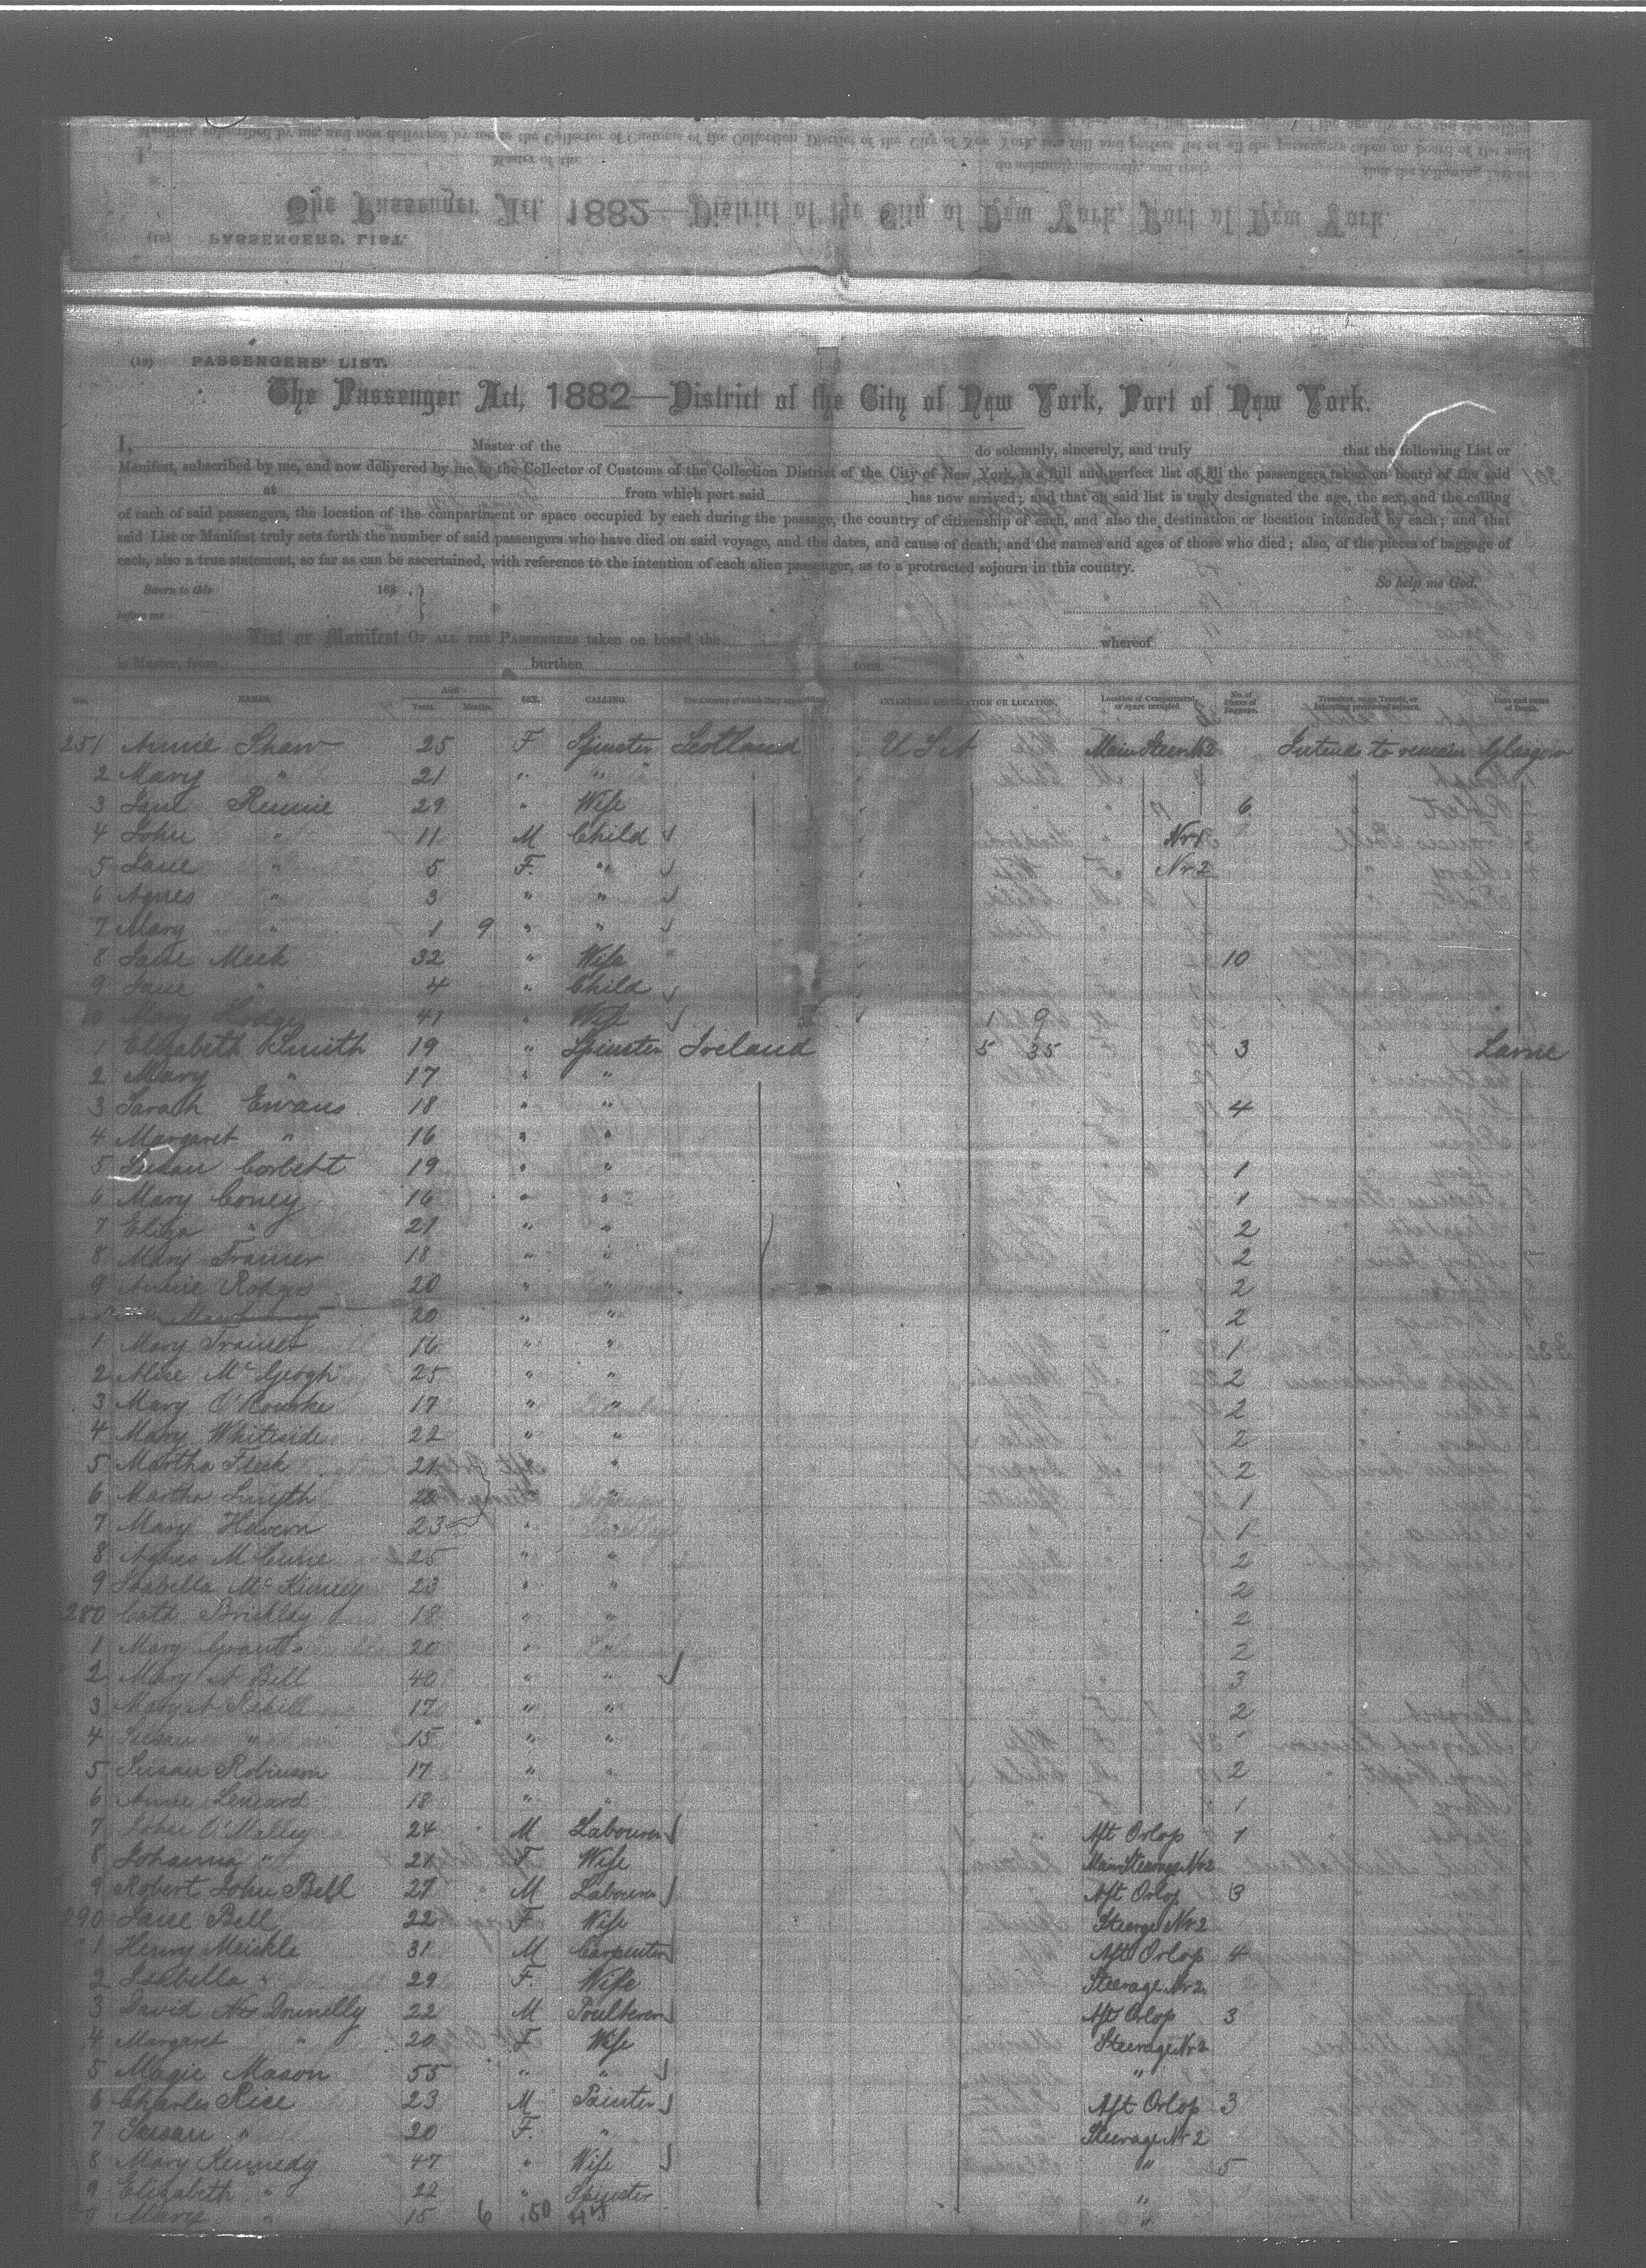 (18) PASSENGERS' LIST.
The Passenger Act, 1882—District of the City of New York, Port of New York.
I, Master of the do solemnly, sincerely, and truly that the following List or
Manifest, subscribed by me, and now delivered by me to the Collector of Customs of the Collection District of the City of New York, is a full and perfect list of all the passengers taken on board of the said
at from which port said has now arrived; and that on said list is truly designated the age, the sex, and the calling
of each of said passengers, the location of the compartment or space occupied by each during the passage, the country of citizenship of each, and also the destination or location intended by each; and that
said List or Manifest truly sets forth the number of said passengers who have died on said voyage, and the dates, and cause of death, and the names and ages of those who died; also, of the pieces of baggage of
each, also a true statement, so far as can be ascertained, with reference to the intention of each alien passenger, as to a protracted sojourn in this country.
So help me God.
Sworn to this 188
before me:
List or Manifest OF ALL THE PASSENGERS taken on board the whereof
is Master, from burthen tons.
No. NAMES. AGE Years. Months. SEX. CALLING. The Country of which they are citizens. INTENDED DESTINATION OR LOCATION. Location of Compartment or space occupied. No. of Pieces of Baggage. Transient, or in Transit, or intending protracted sojourn. Date and cause of Death.
251 Annie Shaw 25 F Spinster Scotland U S A Main Steer Nr 2 Intends to remain Glasgow
2 Mary " 21 " "
3 Jane Rennie 29 " Wife 6
4 John " 11 M Child Nr 1
5 Jane " 5 F. " Nr 2
6 Agnes " 3 " "
7 Mary " 1 9 " "
8 Jane Meek 32 " Wife 10
9 Jane " 4 " Child
10 Mary Hodge 41 " Wife 1 9
1 Elizabeth Smith 19 " Spinster Ireland 5 35 3 Larne
2 Mary " 17 " "
3 Sarah Ewans 18 " " 4
4 Margaret " 16 " "
5 Susan Corbett 19 " " 1
6 Mary Coney 16 " " 1
7 Eliza " 21 " " 2
8 Mary Trainer 18 " " 2
9 Annie Rodgers 20 " " 2
20 " " 2
1 Mary Trainer 16 " " 1
2 Alice Mc Geogh 25 " " 2
3 Mary O'Rourke 17 " " 2
4 Mary Whiteside 22 " " 2
5 Martha Fleck 21 " " 2
6 Martha Smyth 20 " " 1
7 Mary Havern 23 " " 1
8 Agnes M Cune 25 " " 2
9 Isabella Mc Kinney 23 " " 2
280 Cath Brickley 18 " " 2
1 Mary 20 " " 2
2 Mary A Bell 40 " " 3
3 17 " " 2
4 Susan " 15 " "
5 Susan Robinson 17 " " 2
6 Annie Leneard 18 " " 1
7 John O'Malley 24 M Labourer Aft Orlop 1
8 Johanna " 21 F Wife Main Steerage Nr 2
9 Robert John Bell 27 M Labourer Aft Orlop 3
290 Jane Bell 22 F Wife Steerge Nr 2
1 Henry Meickle 31 M Carpenter Aft Orlop 4
2 Isabella " 29 F. Wife Steerage Nr 2
3 David Mc Donnelly 22 M Poulterer Aft Orlop 3
4 Margaret " 20 F Wife Steerage Nr 2
5 Magie Mason 55 " " "
6 Charles Rice 23 M Painter Aft Orlop 3
7 Susan " 20 F. " Steerage Nr 2
8 Mary Kennedy 47 " Wife " 5
9 Elizabeth " 22 " Spinster "
0 Mary " 15 6 "